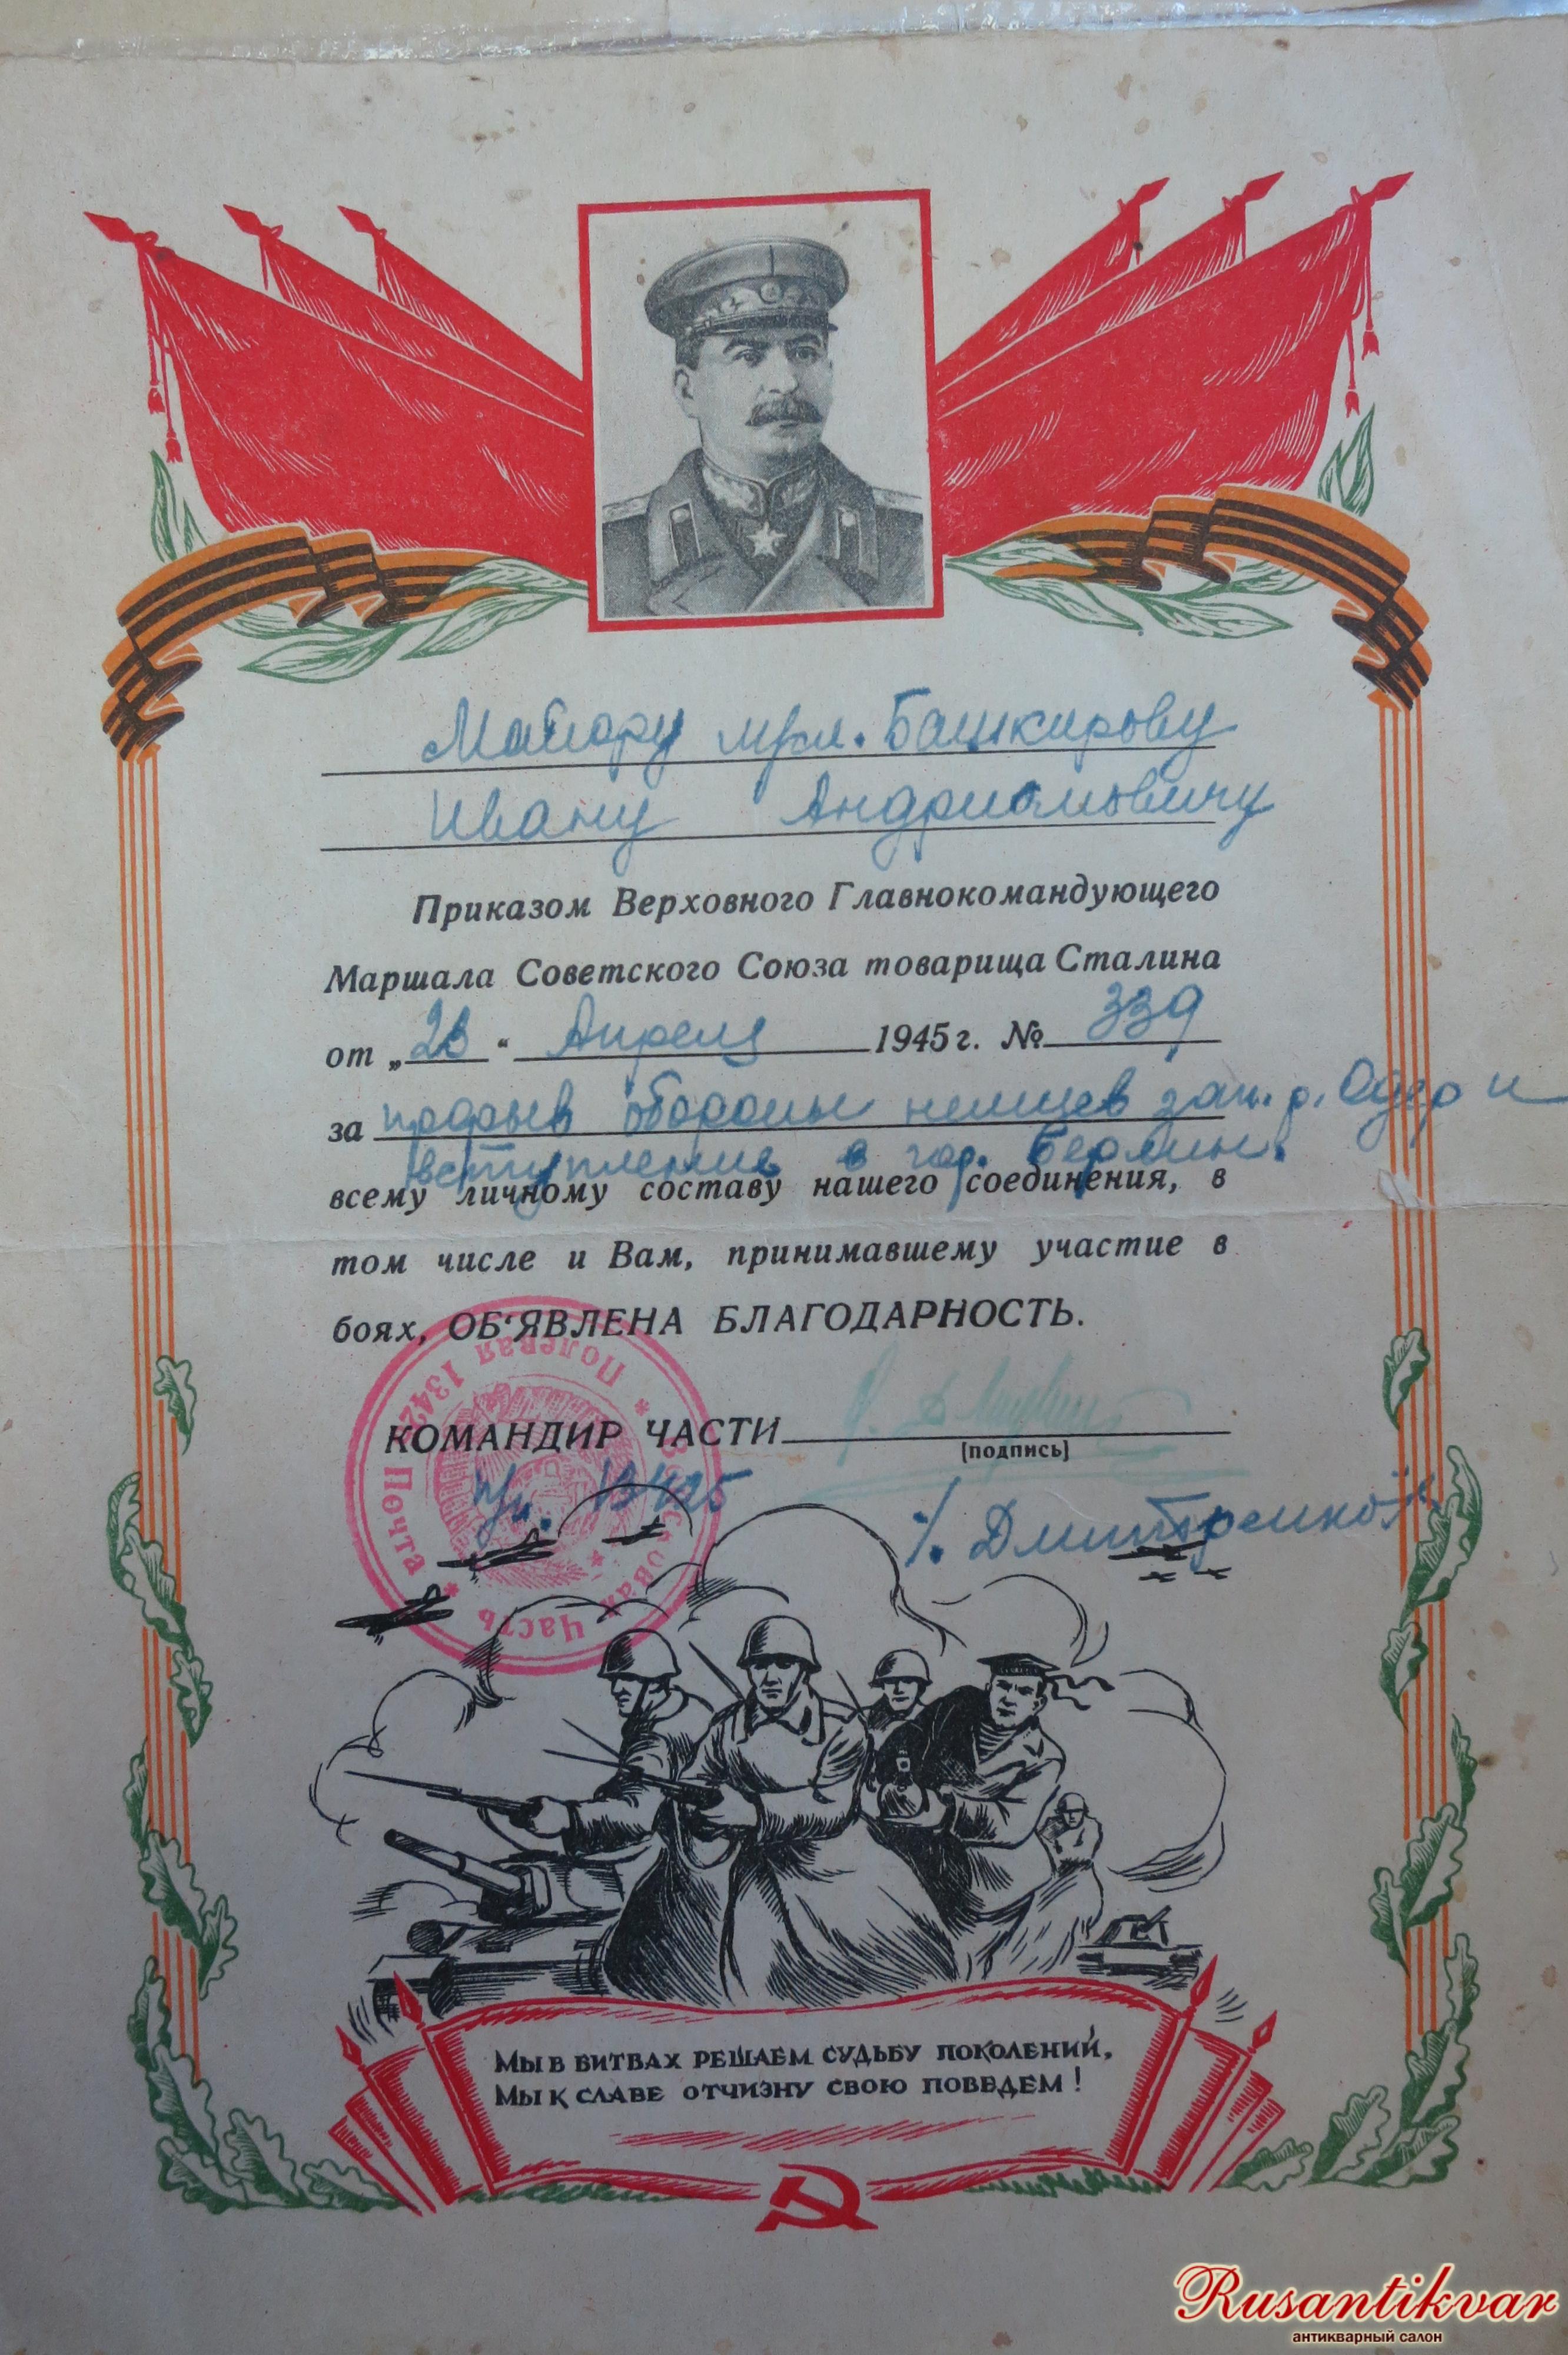 Майору
Башкирову
Ивану Андриановичу
Приказом Верховного Главнокомандующего
Маршала Советского Союза товарища Сталина
от „23“ Апреля 1945 г. № 339
за прорыв обороны немцев зап. р. Одер и
вступление в гор. Берлин.
всему личному составу нашего соединения, в
том числе и Вам, принимавшему участие в
боях, ОБ‘ЯВЛЕНА БЛАГОДАРНОСТЬ.
КОМАНДИР ЧАСТИ
(подпись)
13425
Войсковая Часть * Полевая Почта
МЫ В БИТВАХ РЕШАЕМ СУДЬБУ ПОКОЛЕНИЙ,
МЫ К СЛАВЕ ОТЧИЗНУ СВОЮ ПОВЕДЕМ!
Rusantikvar
антикварный салон